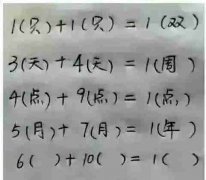 1(只)+1(只) = 1(双)
3(天)+4(天) = 1(周)
4(点)+9(点) = 1(点)
5(月)+7(月) = 1(年)
6( )+10( ) = 1( )